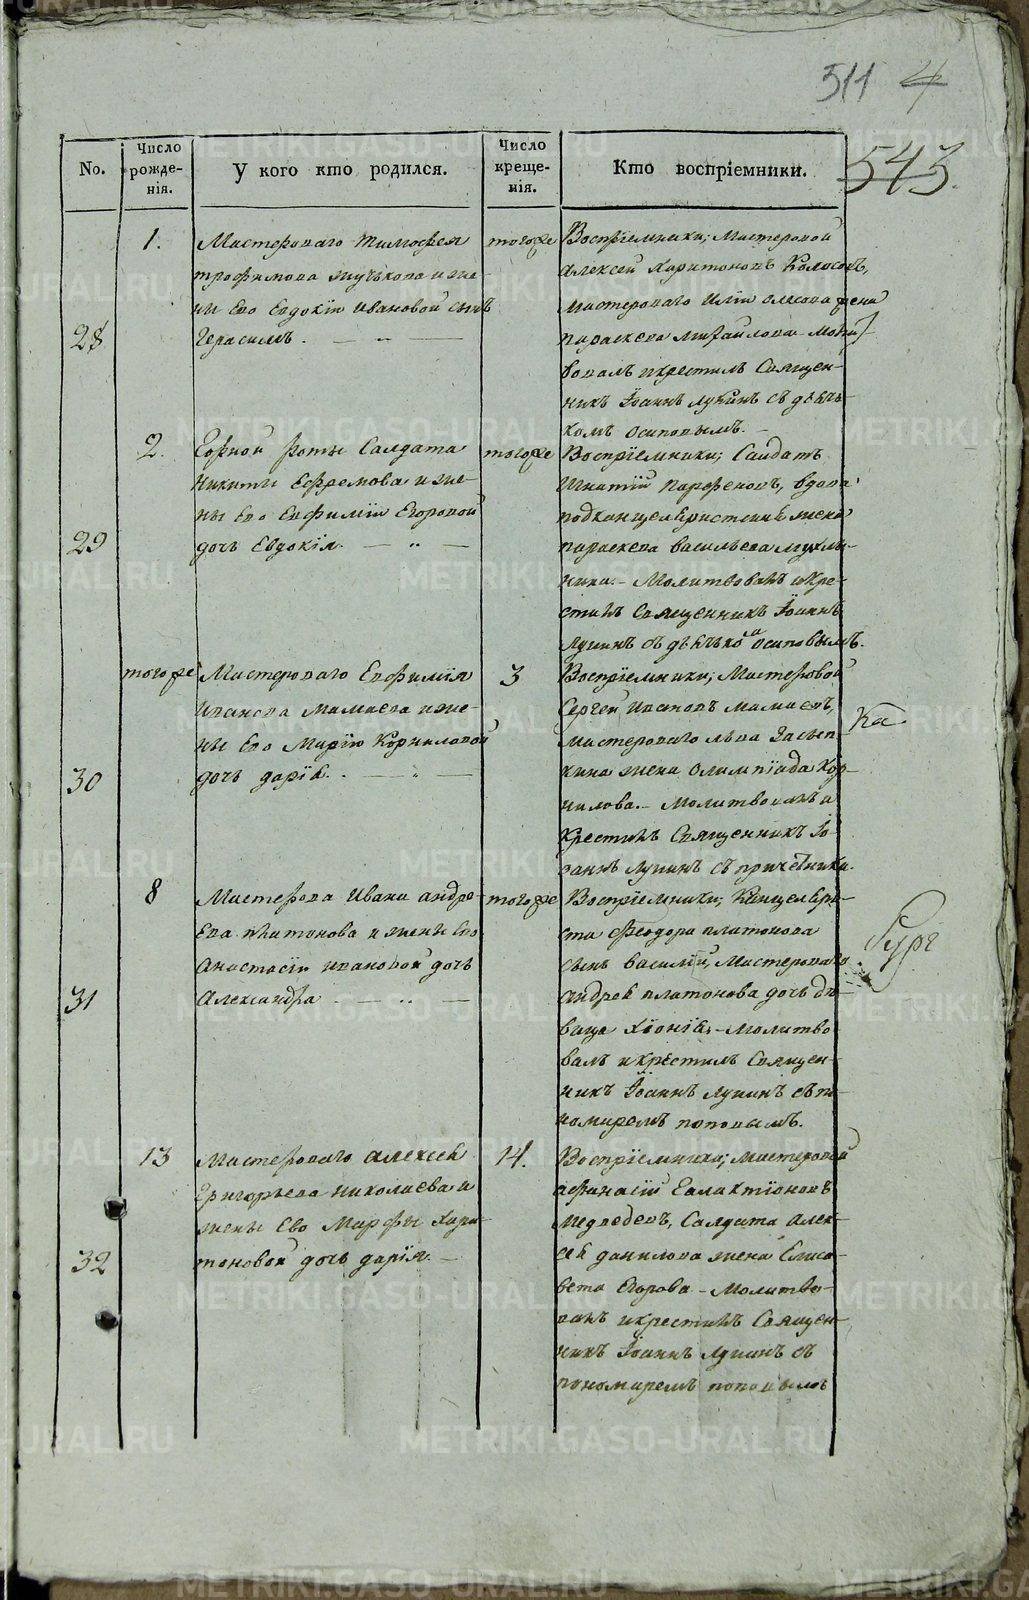 511 4
543.
No.
Число рожде- нія.
У кого кто родился.
Число креще- нія.
Кто воспріемники.
28
1.
Мастероваго Тимофея
трофимова жучкова и же-
ны Его Евдокіи Ивановой сынъ
Герасимъ.
тогоже
Воспріемники; Мастеровой
Алексей Харитоновъ Колосовъ,
мастероваго Иліи Олесова жена
параскева михайлова - Молит-
вовалъ и крестилъ Священ-
никъ Іоаннъ Лупинъ съ дьяч-
комъ Осиповымъ. -
29
2.
Горной роты Салдата
Никиты Ефремова и же-
ны Его Евфиміи Егоровой
дочь Евдокія.
тогоже
Воспріемники; Салдатъ
Игнатій Парфеновъ, вдова
подканцеляристская жена
параскева васильева
Молитвовалъ и кре-
стилъ Священникъ Іоаннъ
Лупинъ съ дьячкомъ Осиповымъ.
30
тогоже
Мастероваго Евфимія
Иванова Мамаева и же-
ны Его Маріи Корниловой
дочь дарія.
3
Воспріемники; Мастеровой
Сергей Ивановъ Мамаевъ,
мастероваго льва Засып-
кина жена Олимпіада Кор-
нилова. - Молитвовалъ и
Крестилъ Священникъ Іо-
аннъ Лупинъ съ причетники.
Ка
31
8
Мастерова Ивана андре-
ева платонова и жены Его
Анастасіи ивановой дочь
Александра
тогоже
Воспріемники; Канцеляри-
ста Феодора платонова
сынъ василій, Мастероваго
Андрея платонова дочь дѣ-
вица Хіонія. - Молитво-
валъ и крестилъ Священ-
никъ Іоаннъ Лупинъ съ по-
номаремъ поповымъ.
32
13
Мастероваго Алексея
Григорьева николаева и
жены Его Марфы Хари-
тоновой дочь дарія. -
14.
Воспріемники; Мастеровой
афанасій Галактіоновъ
Медведевъ, Салдата Алек-
сея данилова жена Елиса-
вета Егорова - Молитво-
валъ и крестилъ Священ-
никъ Іоаннъ Лупинъ съ
пономаремъ поповымъ
METRIKI.GASO-URAL.RU